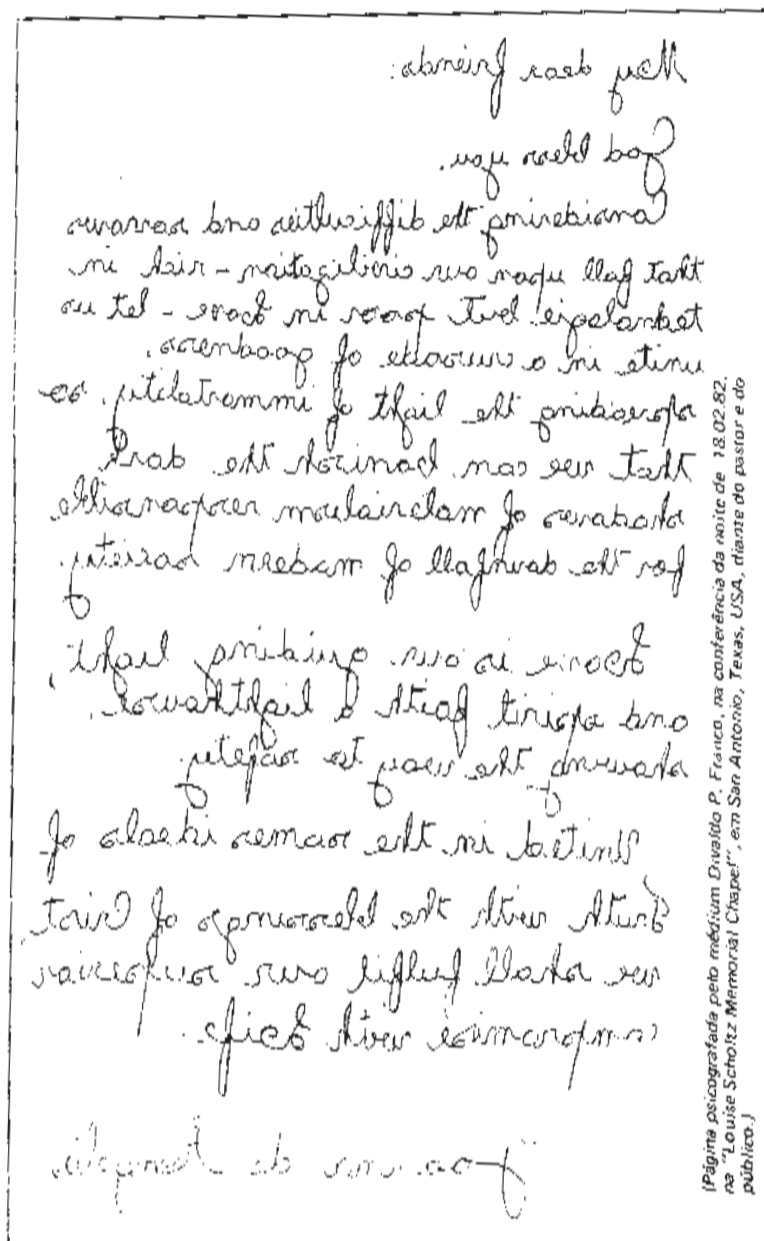 My dear friends:
God bless you.
Considering the difficulties and sorrows
that fall upon our civiligation - rich in
technologie but poor in Love - let us
unite in a crusade of goodness,
spreading the light of immortality, so
that we can banish the dark
shadows of materialism responsible
for the downfall of modern society.
Love is our guiding light,
and spirit faith a lighthouse,
showing the way to safety.
United in the sames ideals of
Truth with the blessings of Crist
we shall fulfil our
compromise with Life.
Joanna de Ângelis
(Página psicografada pelo médium Divaldo P. Franco, na conferência da noite de 18.02.82,
na "Louise Scholtz Memorial Chapel", em San Antonio, Texas, USA, diante do pastor e do
público.)